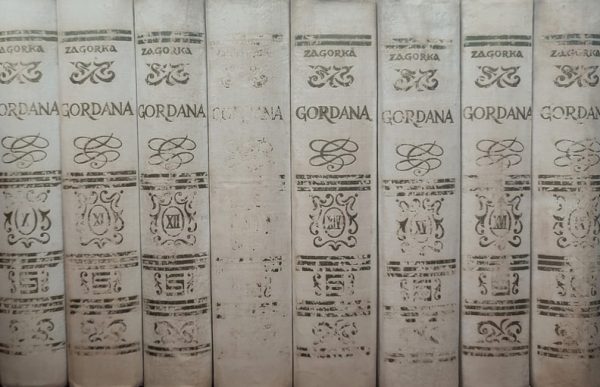 AGORKA
ORDANA
X
ZAGORKA
GORDANA
XI
ZAGORKA
GORDANA
XII
GORDANA
ZAGORKA
GORDANA
XIV
ZAGORKA
GORDANA
XV
ZAGORKA
GORDANA
XVI
ZAGORKA
GORDANA